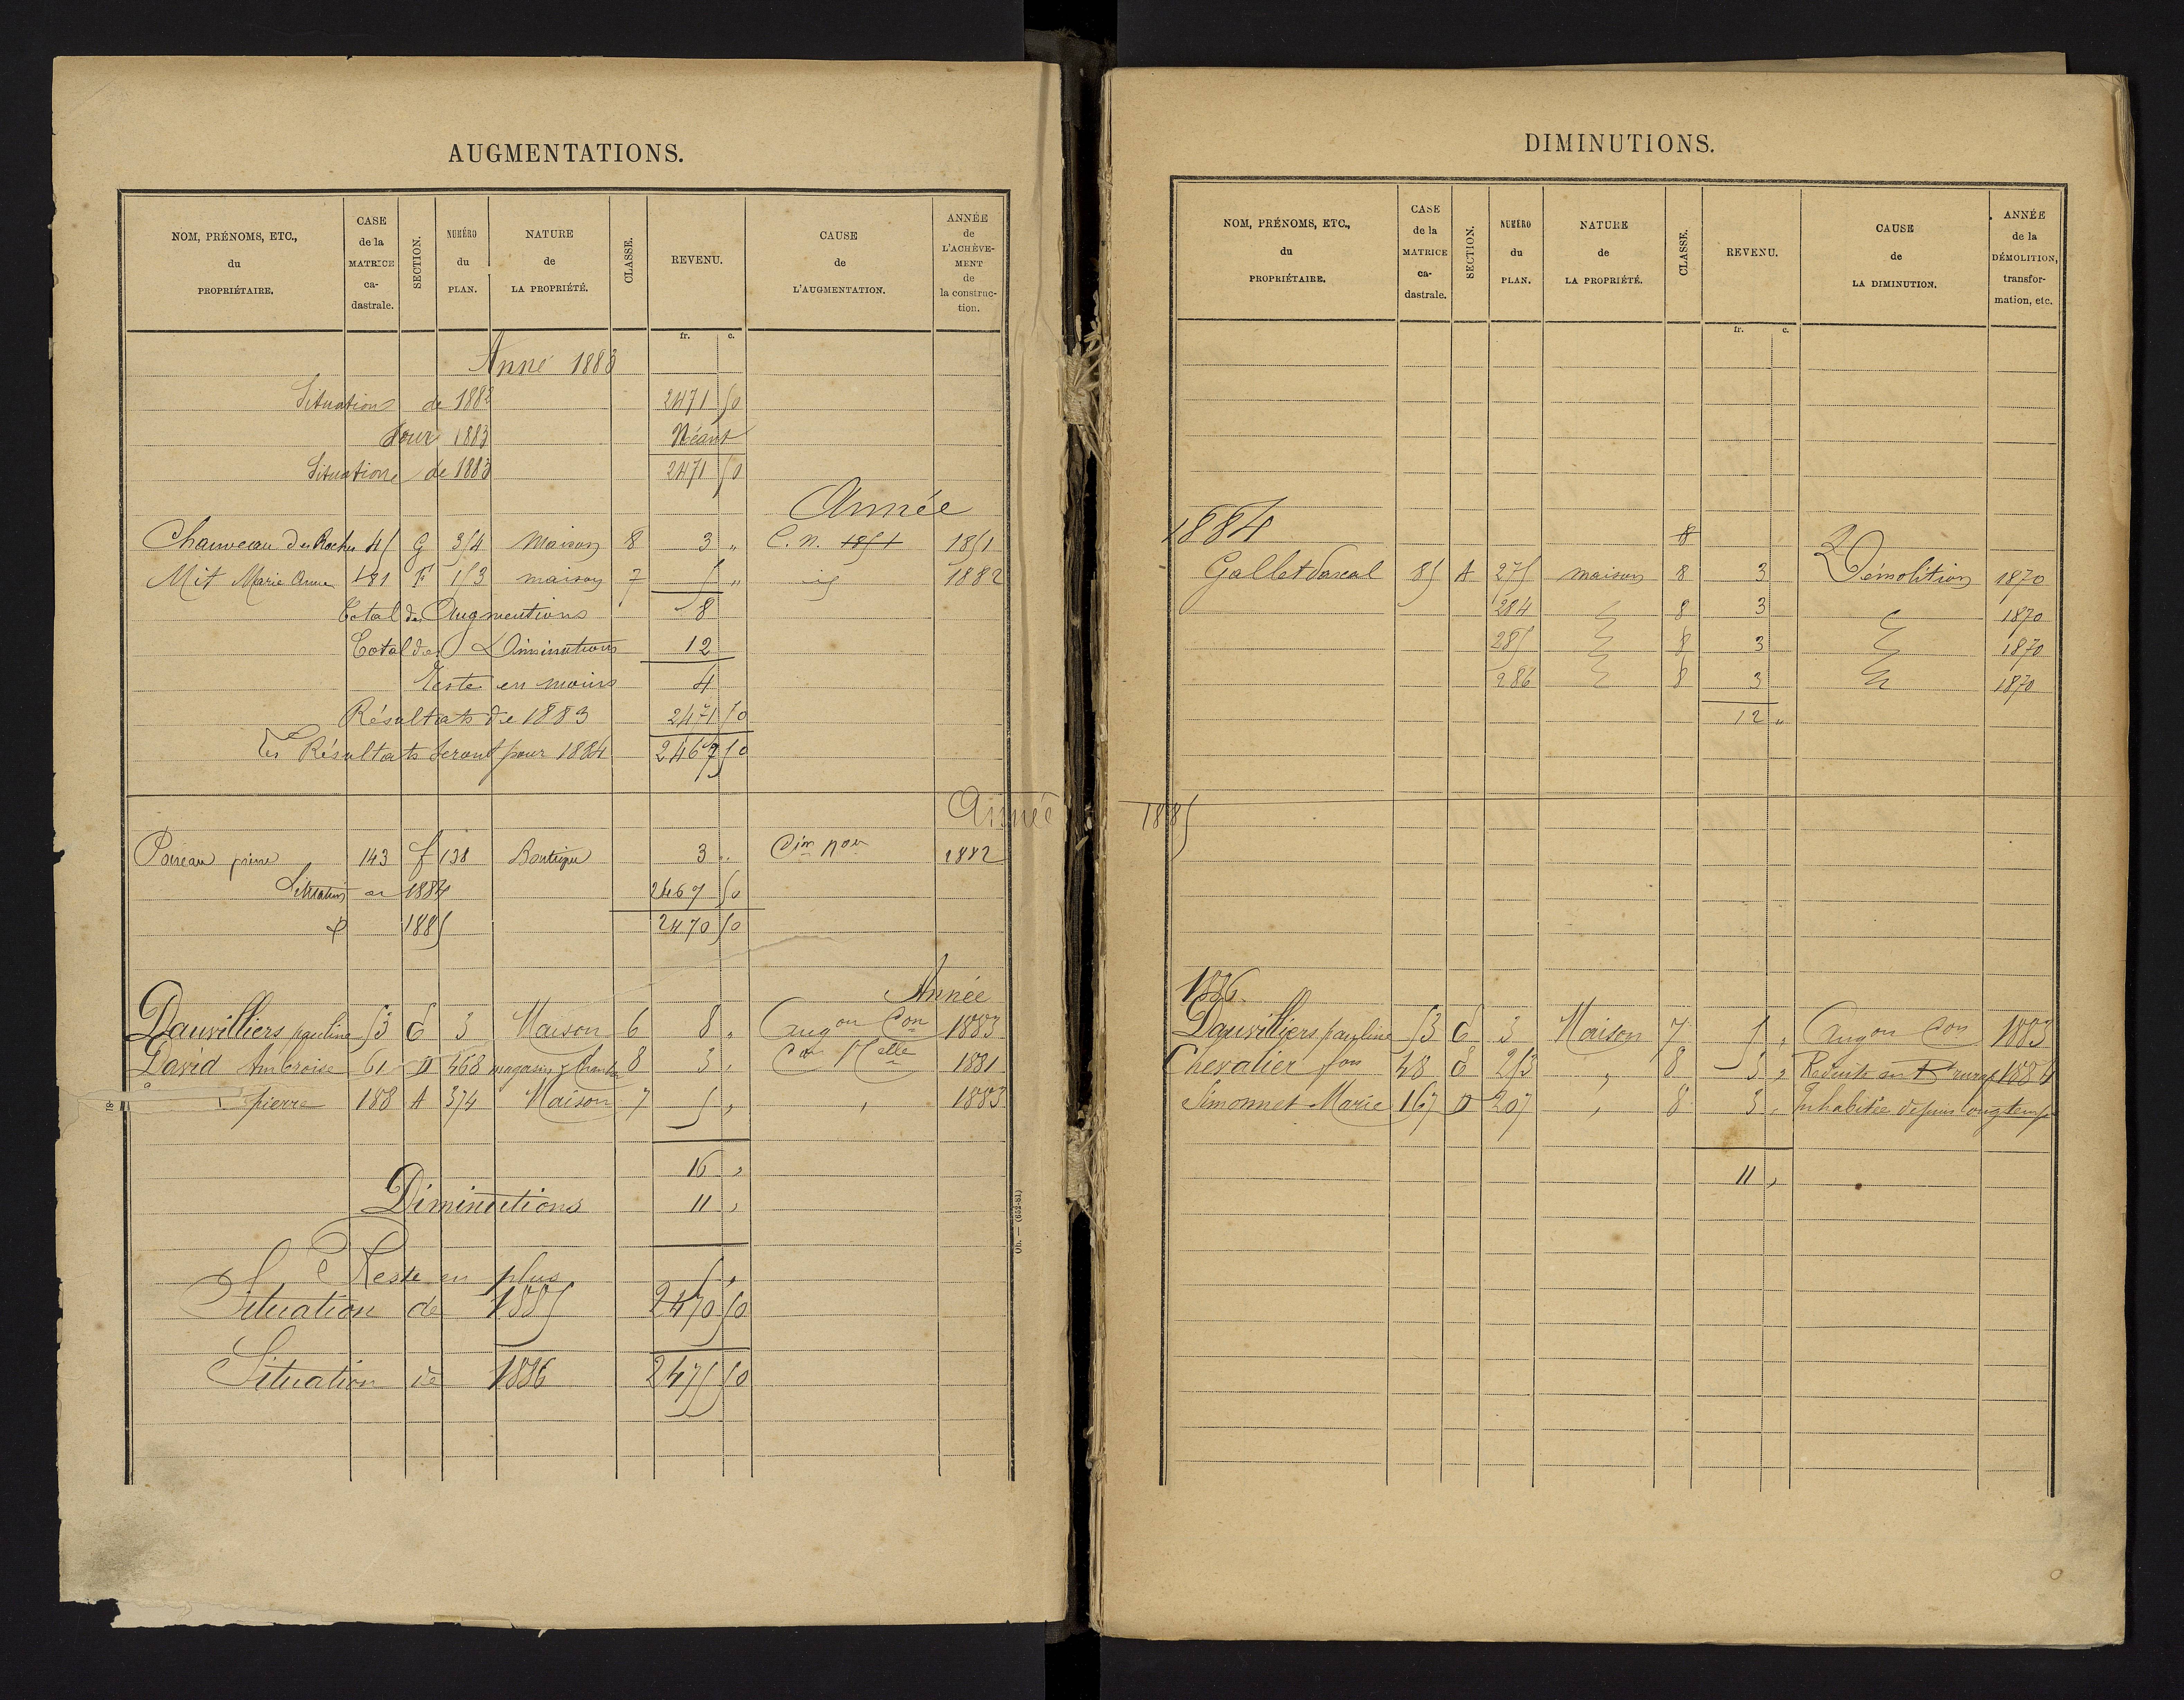 AUGMENTATIONS.
NOM, PRÉNOMS, ETC., du PROPRIÉTAIRE.
CASE de la MATRICE ca- dastrale.
SECTION.
NUMÉRO du PLAN.
NATURE de LA PROPRIÉTÉ.
CLASSE.
REVENU.
CAUSE de L'AUGMENTATION.
ANNÉE de L'ACHÈVE- MENT de la construc- tion.
fr. c.
Anné 1883
Situation de 1882 2471 50
Pour 1883 Néant
Situation de 1883 2471 50
Année
Chauveau Des Roches 45 G 354 Maison 8 3 " C. n. 1851 1851
Mit Marie Anne 181 F 153 maison 7 5 " id 1882
Total des Augmentions 8
Total des Diminutions 12
Reste en moins 4
Résultats de 1883 2471 50
Les Résultats seront pour 1884 2467 50
Année
143 f 138 Boutique 3 " Con Nou 1882
Situation en 1884 2467 50
1885 2470 50
Année
Dauvilliers pauline 53 C 3 Maison 6 8 " Augon Con 1883
David Ambroise 61 D 468 magasin 8 3 " Con Nelle 1881
pierre 188 A 374 Maison 7 5 " " 1883
16 "
Diminutions 11 "
Reste en plus 5 "
Situation de 1885 2470 50
Situation de 1886 2475 50
Ob. — (652-81)
18
DIMINUTIONS.
NOM, PRÉNOMS, ETC., du PROPRIÉTAIRE.
CASE de la MATRICE ca- dastrale.
SECTION.
NUMÉRO du PLAN.
NATURE de LA PROPRIÉTÉ.
CLASSE.
REVENU.
CAUSE de LA DIMINUTION.
ANNÉE de la DÉMOLITION, transfor- mation, etc.
fr. c.
1884 8
Gallet Pascal 85 A 275 maison 8 3 Démolition 1870
284 8 3 1870
285 8 3 1870
286 8 3 1870
12 "
1885
1886.
Dauvilliers pauline 53 C 3 Maison 7 5 " Augon Con 1883
Chevalier fois 48 C 253 " 8 3 " Reduite en Bt rural 1884
Simonnet Marie 167 D 207 " 8 3 " Inhabitée depuis longtemps
11 "